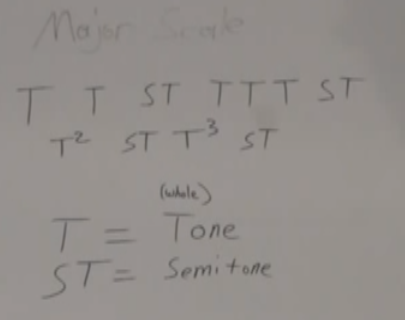 Major Scale
T T ST T T T ST
T² ST T³ ST
(whole)
T = Tone
ST = Semitone